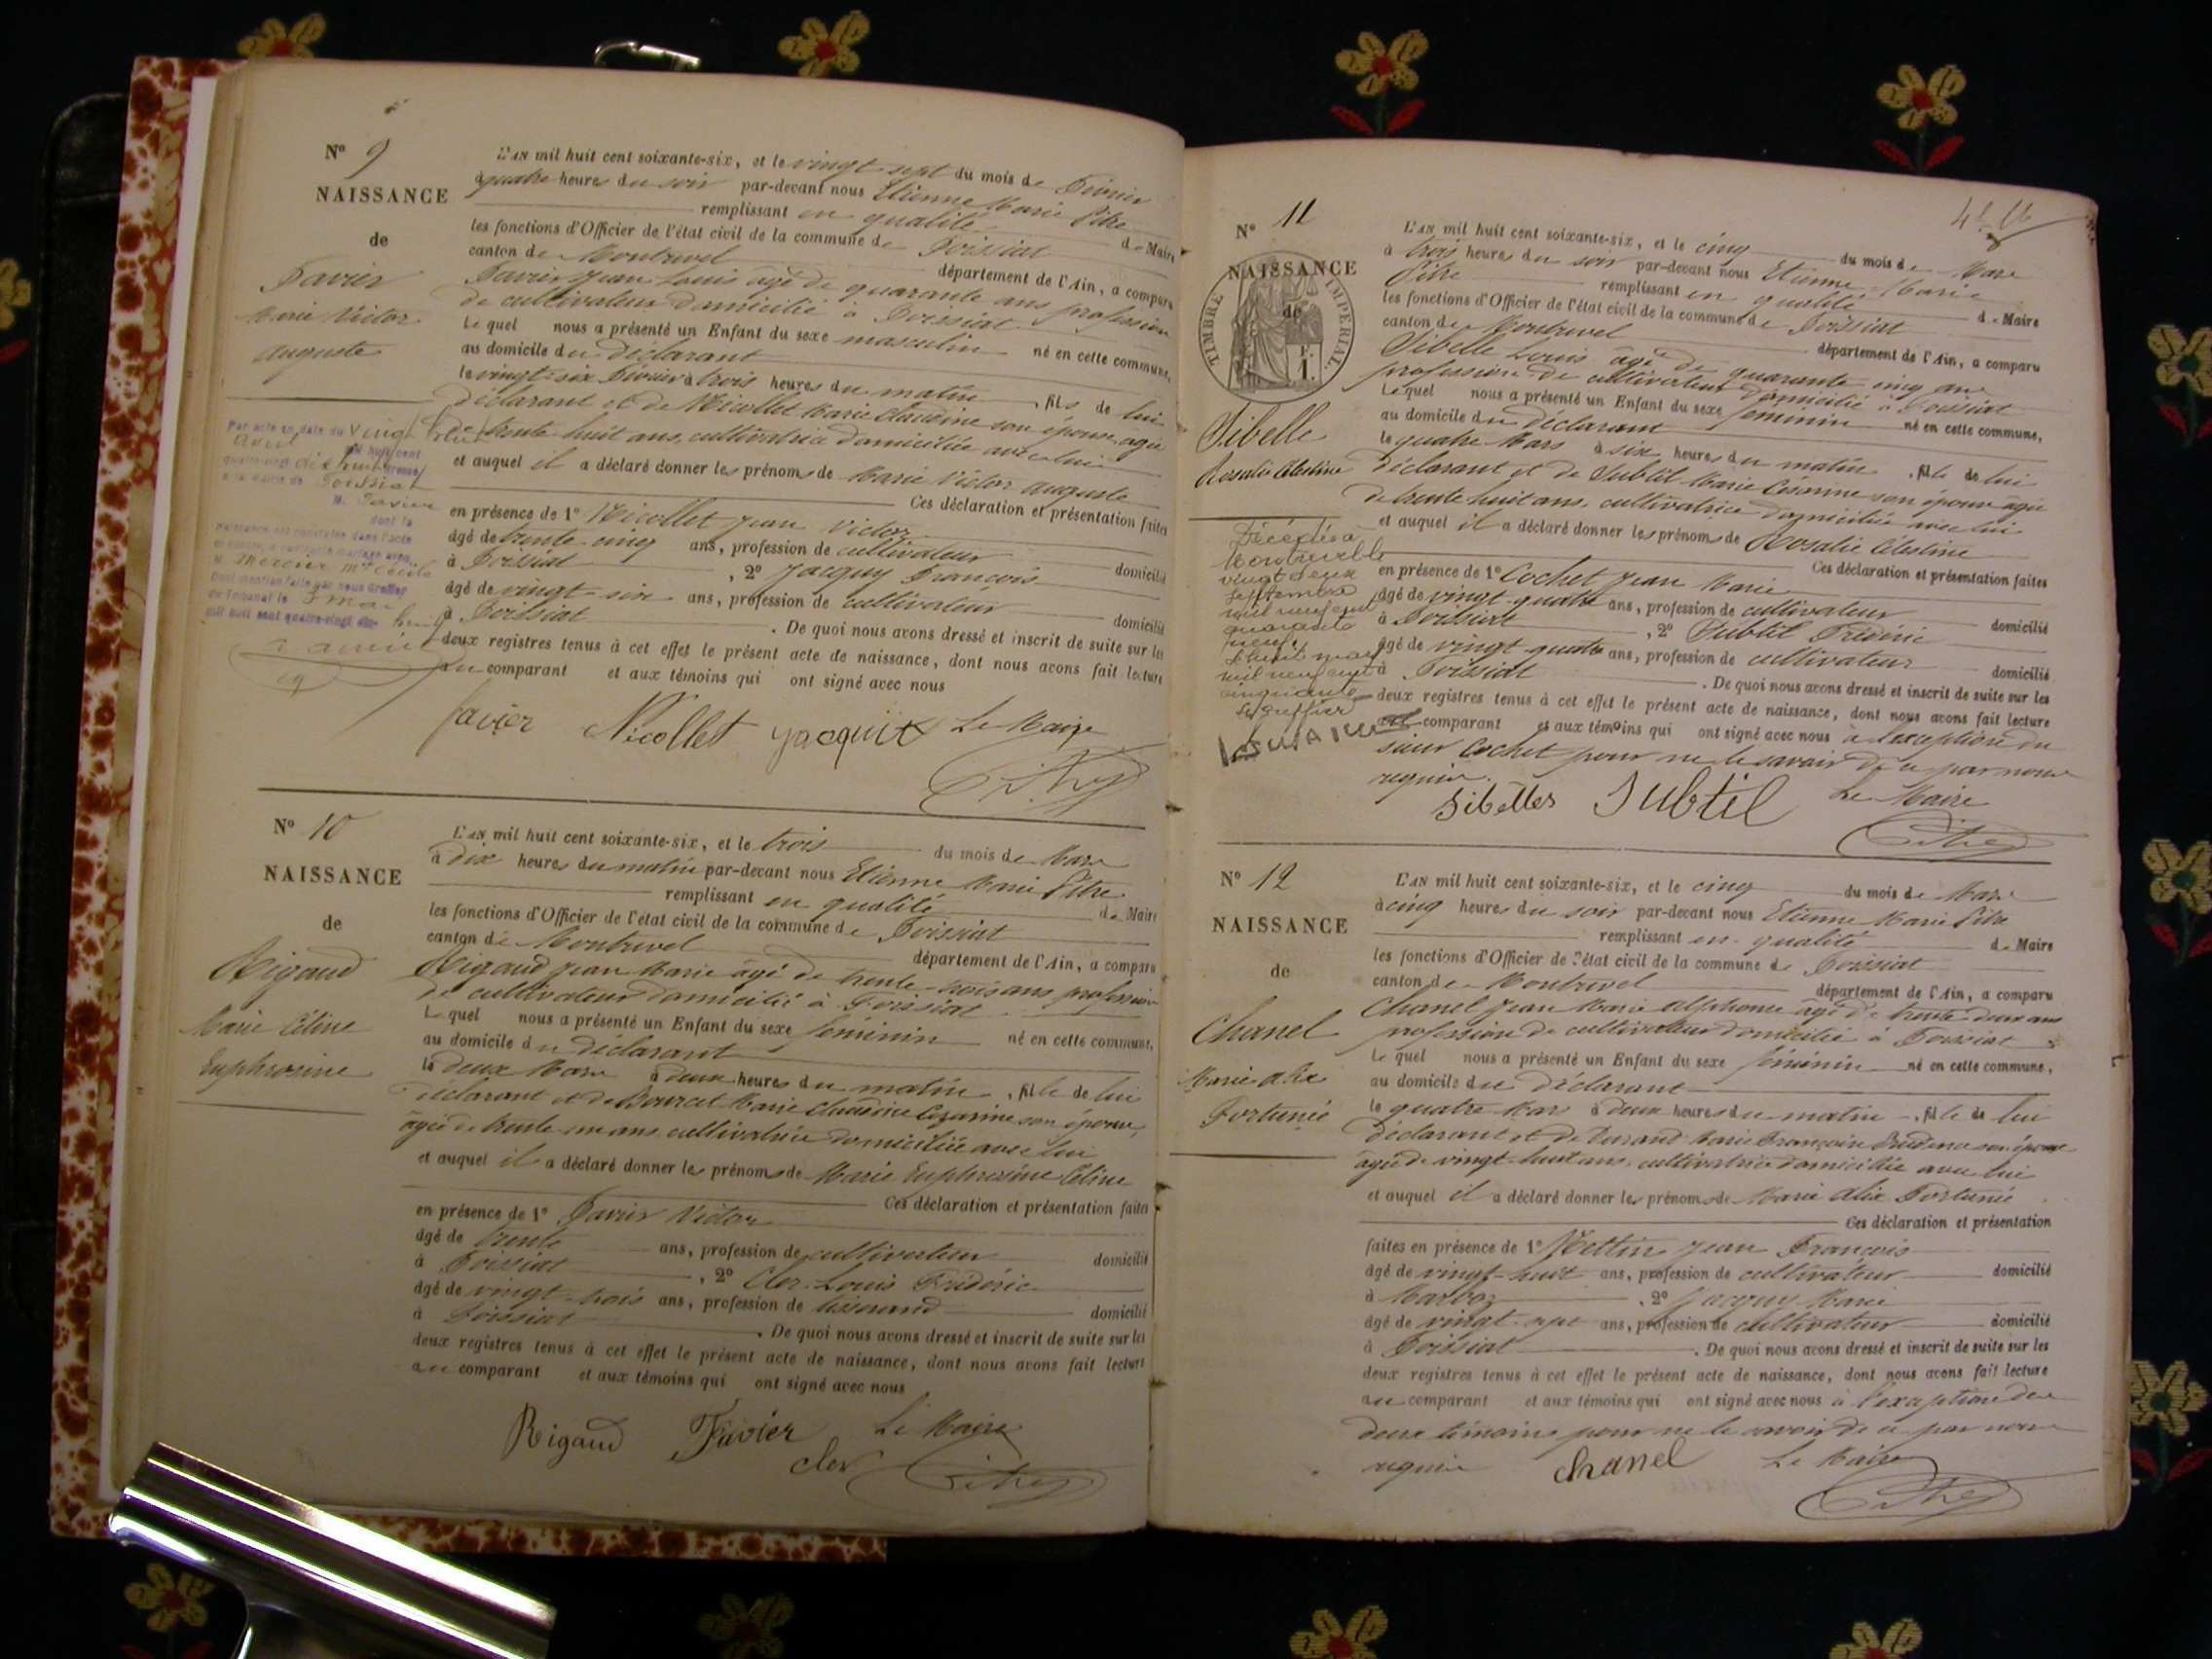 Nº 9
NAISSANCE
de
Favier
Marie Victor
Auguste
L'AN mil huit cent soixante-six, et le vingt sept du mois de Février
à quatre heures du soir par-devant nous Etienne Marie Pitre
remplissant en qualité de Maire
les fonctions d'Officier de l'état civil de la commune de Foissiat
canton de Montrevel département de l'Ain, a comparu
Favier Jean Louis âgé de quarante ans profession
de cultivateur domicilié à Foissiat
Lequel nous a présenté un Enfant du sexe masculin né en cette commune,
au domicile du déclarant
le vingt-six Février à trois heures du matin, fils de lui
déclarant et de Nicollet Marie Claudine son épouse, agée
de trente huit ans, cultivatrice domiciliée avec lui
et auquel il a déclaré donner les prénoms de Marie Victor Auguste
Ces déclaration et présentation faites
en présence de 1º Nicollet Jean Victor
âgé de trente-cinq ans, profession de cultivateur domicilié
à Foissiat, 2º Jacquy François
âgé de vingt-six ans, profession de cultivateur domicilié
à Foissiat. De quoi nous avons dressé et inscrit de suite sur les
deux registres tenus à cet effet le présent acte de naissance, dont nous avons fait lecture
au comparant et aux témoins qui ont signé avec nous
favier Nicollet Jacquit Le Maire
Pitre
Par acte en date du vingt huit
avril mil huit cent
quatre-vingt dix huit dressé
à la mairie de Foissiat
M. Favier
dont la
naissance est constatée dans l'acte
ci-contre, a contracté mariage avec
M. Mercier Mie Cécile
Dont mention faite par nous Greffier
du Tribunal le 5 Mai
mil huit cent quatre-vingt dix huit
Nº 10
NAISSANCE
de
Rigaud
Marie Céline
Euphrosine
L'AN mil huit cent soixante-six, et le trois du mois de Mars
à dix heures du matin par-devant nous Etienne Marie Pitre
remplissant en qualité de Maire
les fonctions d'Officier de l'état civil de la commune de Foissiat
canton de Montrevel département de l'Ain, a comparu
Rigaud Jean Marie âgé de trente-trois ans profession
de cultivateur domicilié à Foissiat
Lequel nous a présenté un Enfant du sexe féminin né en cette commune,
au domicile du déclarant
le deux Mars à deux heures du matin, fille de lui
déclarant et de Bourcet Marie Claudine Cézarine son épouse,
âgée de trente-un ans, cultivatrice domiciliée avec lui
et auquel il a déclaré donner les prénoms de Marie Euphrosine Céline
Ces déclaration et présentation faites
en présence de 1º Favier Victor
âgé de trente ans, profession de cultivateur domicilié
à Foissiat, 2º Cler Louis Frédéric
âgé de vingt-trois ans, profession de tisserand domicilié
à Foissiat. De quoi nous avons dressé et inscrit de suite sur les
deux registres tenus à cet effet le présent acte de naissance, dont nous avons fait lecture
au comparant et aux témoins qui ont signé avec nous
Rigaud Favier Le Maire
cler Pitre
Nº 11
NAISSANCE
de
TIMBRE IMPERIAL
F. 1.
Sibelle
Rosalie Célestine
L'AN mil huit cent soixante-six, et le cinq du mois de Mars
à trois heures du soir par-devant nous Etienne Marie
Pitre remplissant en qualité de Maire
les fonctions d'Officier de l'état civil de la commune de Foissiat
canton de Montrevel département de l'Ain, a comparu
Sibelle Louis âgé de quarante cinq ans
profession de cultivateur domicilié à Foissiat
Lequel nous a présenté un Enfant du sexe féminin né en cette commune,
au domicile du déclarant
le quatre Mars à six heures du matin, fille de lui
déclarant et de Subtil Marie Césarine son épouse agée
de trente huit ans, cultivatrice domiciliée avec lui
et auquel il a déclaré donner les prénoms de Rosalie Célestine
Ces déclaration et présentation faites
en présence de 1º Cochet Jean Marie
âgé de vingt-quatre ans, profession de cultivateur domicilié
à Foissiat, 2º Subtil Frédéric
âgé de vingt quatre ans, profession de cultivateur domicilié
à Foissiat. De quoi nous avons dressé et inscrit de suite sur les
deux registres tenus à cet effet le présent acte de naissance, dont nous avons fait lecture
au comparant et aux témoins qui ont signé avec nous à l'exception du
sieur Cochet pour ne le savoir de ce par nous
requis.
Sibelles Subtil Le Maire
Pitre
Décédée à
Montrevel le
vingt deux
septembre
mil neuf cent
quarante
neuf.
mil neuf cent
cinquante
Le greffier
Nº 12
NAISSANCE
de
Chanel
Marie Alix
Fortunée
L'AN mil huit cent soixante-six, et le cinq du mois de Mars
à cinq heures du soir par-devant nous Etienne Marie Pitre
remplissant en qualité de Maire
les fonctions d'Officier de l'état civil de la commune de Foissiat
canton de Montrevel département de l'Ain, a comparu
Chanel Jean Marie Alphonse âgé de trente-deux ans
profession de cultivateur domicilié à Foissiat
Lequel nous a présenté un Enfant du sexe féminin né en cette commune,
au domicile du déclarant
le quatre Mars à deux heures du matin, fille de lui
déclarant et de Durand Marie Françoise Prudence son épouse
âgée de vingt-huit ans, cultivatrice domiciliée avec lui
et auquel il a déclaré donner les prénoms de Marie Alix Fortunée
Ces déclaration et présentation
faites en présence de 1º Nettin Jean François
âgé de vingt-huit ans, profession de cultivateur domicilié
à Marboz, 2º Jacquy Marie
âgé de vingt-sept ans, profession de cultivateur domicilié
à Foissiat. De quoi nous avons dressé et inscrit de suite sur les
deux registres tenus à cet effet le présent acte de naissance, dont nous avons fait lecture
au comparant et aux témoins qui ont signé avec nous à l'exception des
deux témoins pour ne le savoir de ce par nous
requis chanel Le Maire
Pitre